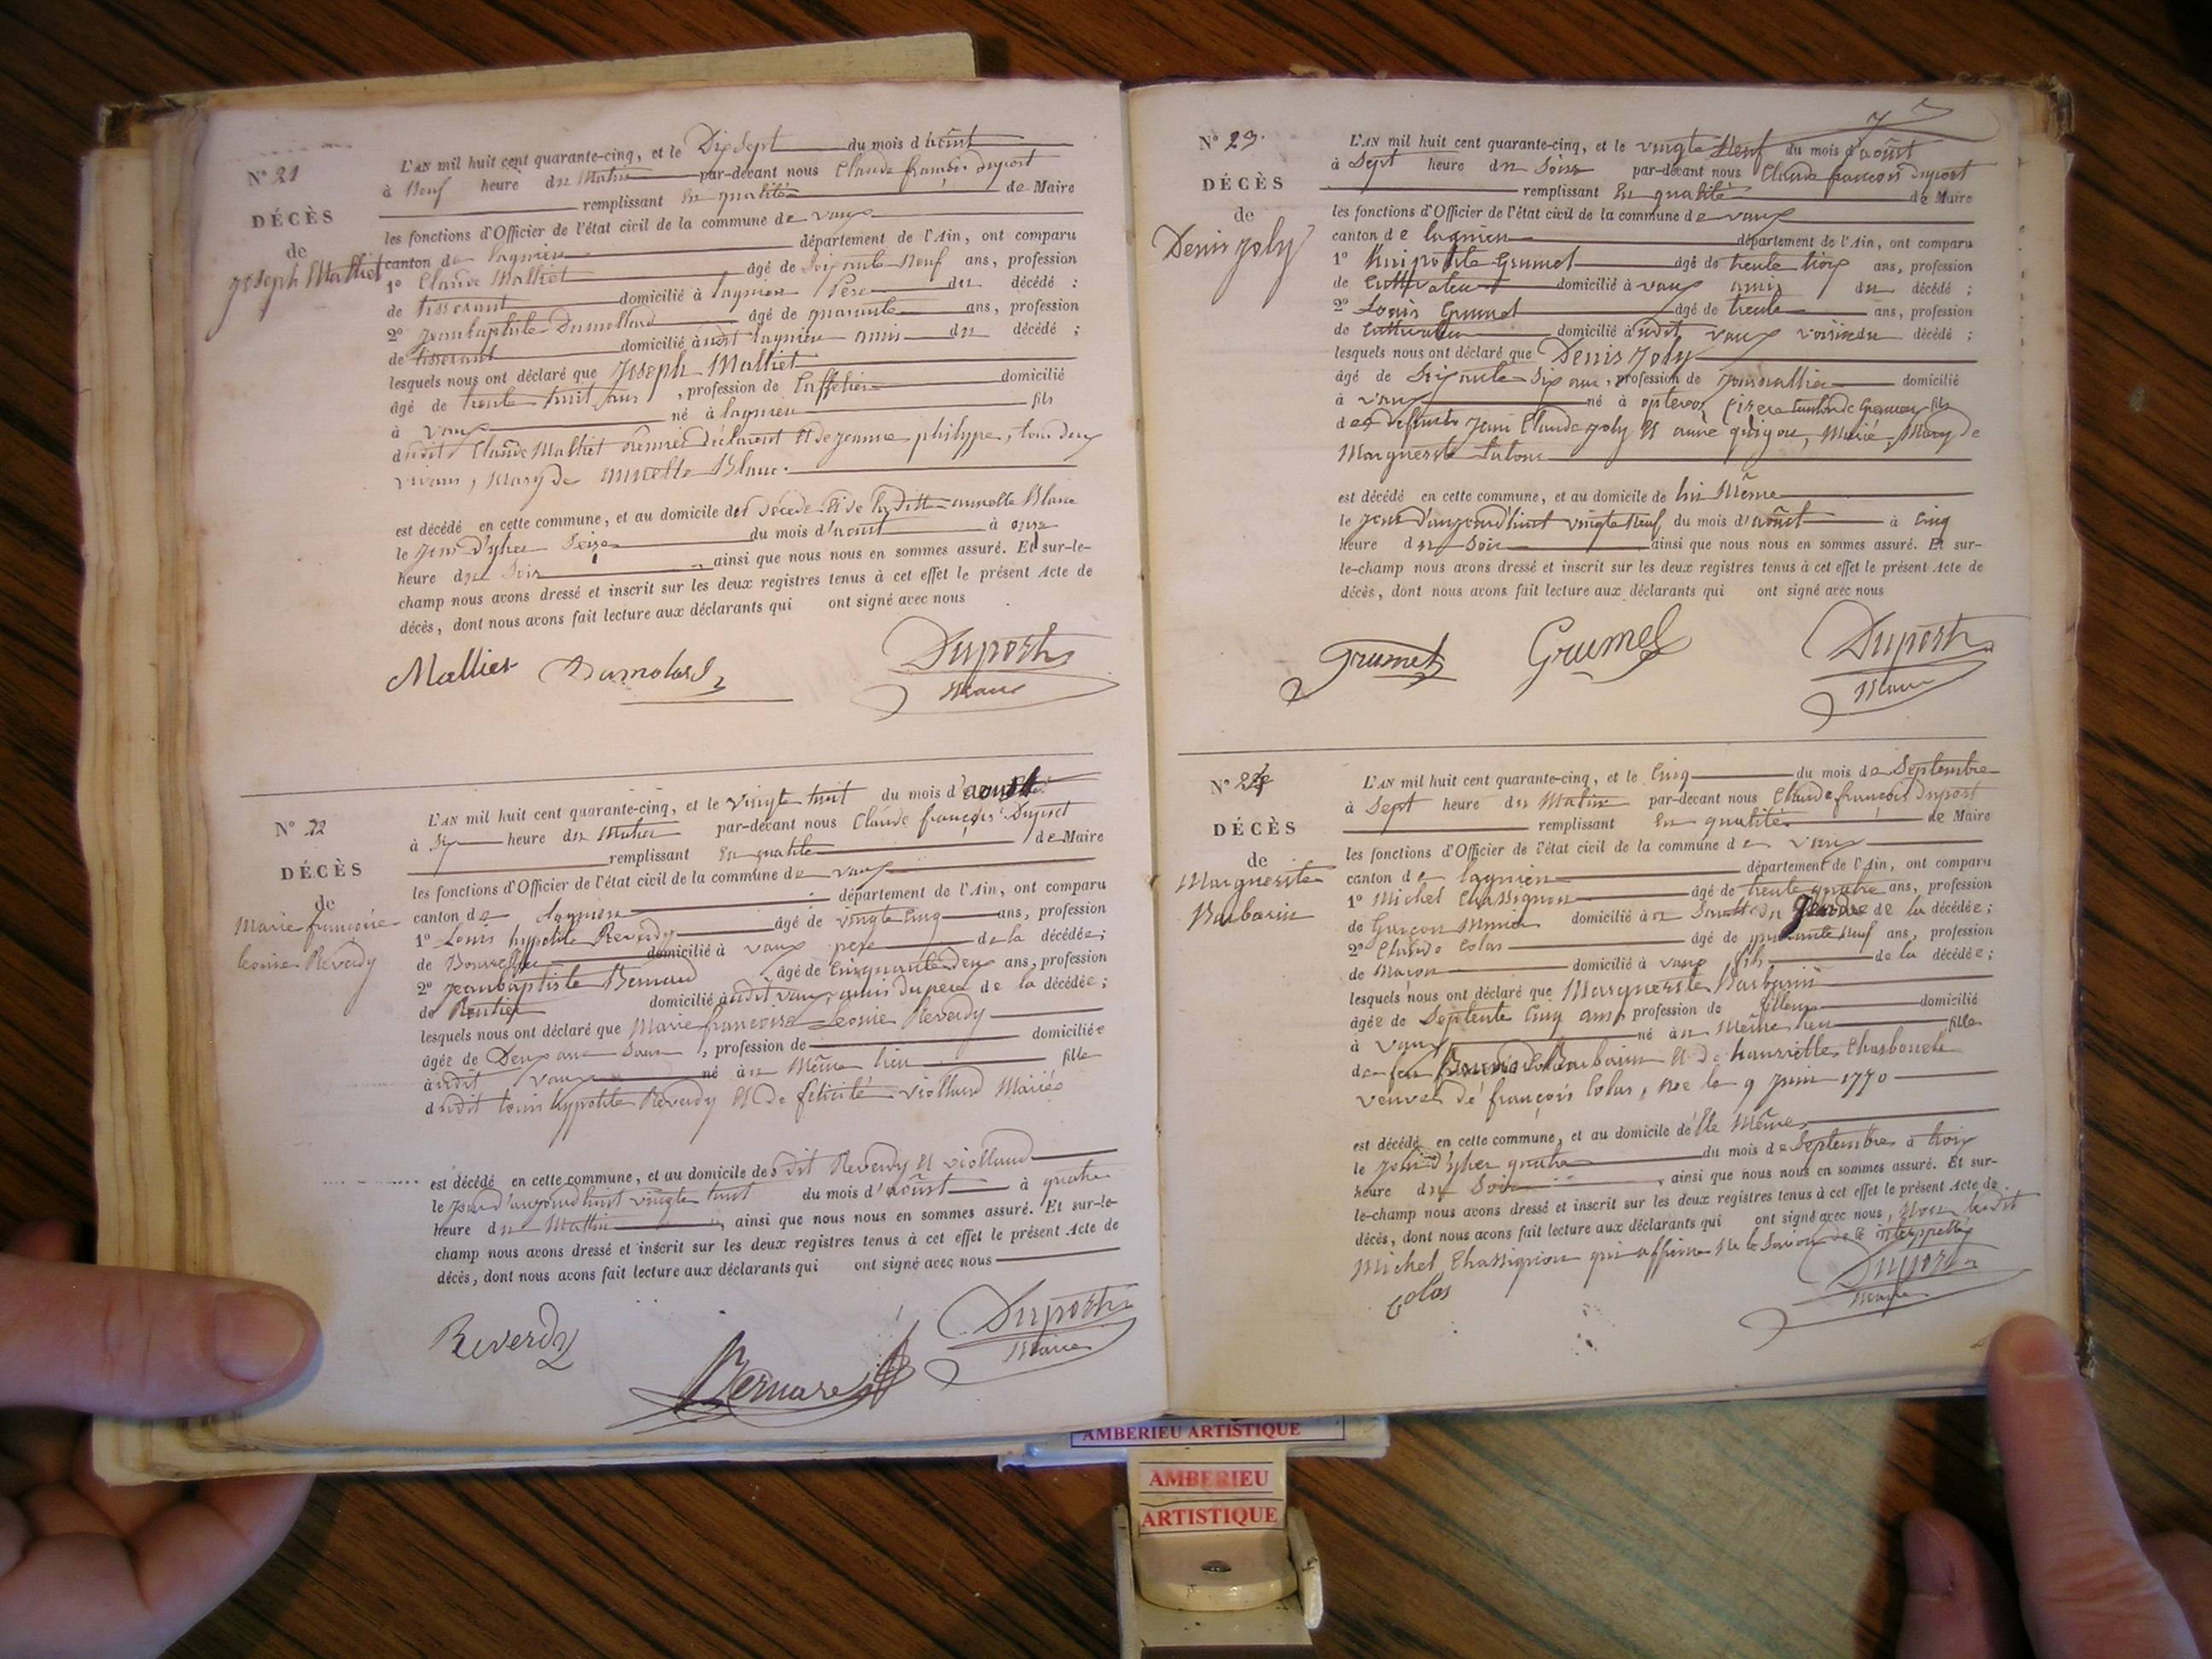 N° 21
DÉCÈS
de
Joseph Malliet
L'AN mil huit cent quarante-cinq, et le Dix Sept du mois d'août
à Neuf heure du Matin par-devant nous Claude françois duport
remplissant En qualité de Maire
les fonctions d'Officier de l'état civil de la commune de vaux
canton de lagnieu département de l'Ain, ont comparu
1° Claude Malliet âgé de Soixante Neuf ans, profession
de tisserant domicilié à lagnieu Père du décédé ;
2° Jeanbaptiste Dumollard âgé de quarante ans, profession
de tisserant domicilié à udit lagnieu amis du décédé ;
lesquels nous ont déclaré que Joseph Malliet
âgé de trente huit ans, profession de Caffetier domicilié
à vaux né à lagnieu fils
dudit Claude Malliet Premier déclarant et de jeanne philippe, tous deux
vivans, Mary de annette Blanc.
est décédé en cette commune, et au domicile des décédé et de laditte annette Blanc
le jour d'yher Seize du mois d'août à onze
heure du Soir, ainsi que nous nous en sommes assuré. Et sur-le-
champ nous avons dressé et inscrit sur les deux registres tenus à cet effet le présent Acte de
décès, dont nous avons fait lecture aux déclarants qui ont signé avec nous
Malliet Dumolard Duport
Maire
N° 22
DÉCÈS
de
Marie françoise
leonie Reverdy
L'AN mil huit cent quarante-cinq, et le vingte huit du mois d'août
à Six heure du Matin par-devant nous Claude françois Duport
remplissant En qualité de Maire
les fonctions d'Officier de l'état civil de la commune de vaux
canton de lagnieu département de l'Ain, ont comparu
1° Louis hypolite Reverdy âgé de vingte Cinq ans, profession
de domicilié à vaux pere de la décédée;
2° Jeanbaptiste Bernard âgé de Cinquante Deux ans, profession
de Rentier domicilié à udit vaux, amis du pere de la décédée;
lesquels nous ont déclaré que Marie françoise Leonie Reverdy
âgée de Deux ans, profession de domiciliée
à udit vaux né au Même lieu fille
dudit louis hypolite Reverdy et de felicité viollaud Mariés
est décédé en cette commune, et au domicile des dit Reverdy et viollaud
le jour d'aujourdhuit vingte huit du mois d'août à quatre
heure du Mattin, ainsi que nous nous en sommes assuré. Et sur-le-
champ nous avons dressé et inscrit sur les deux registres tenus à cet effet le présent Acte de
décès, dont nous avons fait lecture aux déclarants qui ont signé avec nous
Reverdy Bernard Duport
Maire
N° 23.
DÉCÈS
de
Denis Joly
L'AN mil huit cent quarante-cinq, et le vingte Neuf du mois d'août
à Sept heure du Soir par-devant nous Claude françois duport
remplissant En qualité de Maire
les fonctions d'Officier de l'état civil de la commune de vaux
canton de lagnieu département de l'Ain, ont comparu
1° Grumet âgé de trente trois ans, profession
de Cultivateur domicilié à vaux amis du décédé ;
2° Louis Grumet âgé de trente ans, profession
de Cultivateur domicilié à udit vaux voisin du décédé ;
lesquels nous ont déclaré que Denis Joly
âgé de Soixante Six ans, profession de Journallier domicilié
à vaux né à optevoz fils
des defunts Jean Claude joly et Mary de
Marguerite
est décédé en cette commune, et au domicile de lui Même
le jour d'aujourd'huit vingte Neuf du mois d'août à Cinq
heure du Soir ainsi que nous nous en sommes assuré. Et sur-
le-champ nous avons dressé et inscrit sur les deux registres tenus à cet effet le présent Acte de
décès, dont nous avons fait lecture aux déclarants qui ont signé avec nous
Grumet Grumet Duport
Maire
N° 24
DÉCÈS
de
Marguerite
Barbarin
L'AN mil huit cent quarante-cinq, et le Cinq du mois de Septembre
à Sept heure du Matin par-devant nous Claude françois duport
remplissant En qualité de Maire
les fonctions d'Officier de l'état civil de la commune de vaux
canton de lagnieu département de l'Ain, ont comparu
1° Michel Chassignon âgé de trente quatre ans, profession
de Garçon domicilié à Gendre de la décédée;
2° Claude Colas âgé de quarante Neuf ans, profession
de Maçon domicilié à vaux fils de la décédée;
lesquels nous ont déclaré que Marguerite Barbarin
âgée de Septente Cinq ans, profession de domicilié
à vaux né au Même lieu fille
de feu Barbarin et de
veuve de françois Colas, née le 9 Juin 1770
est décédé en cette commune, et au domicile de Elle Même
le jour d'yher quatre du mois de Septembre à trois
heure du Soir, ainsi que nous nous en sommes assuré. Et sur-
le-champ nous avons dressé et inscrit sur les deux registres tenus à cet effet le présent Acte de
décès, dont nous avons fait lecture aux déclarants qui ont signé avec nous, Non ledit
Michel Chassignon qui affirme Ne le Savoir de ce interppellé
Colas Duport
Maire
AMBERIEU ARTISTIQUE
AMBERIEU
ARTISTIQUE